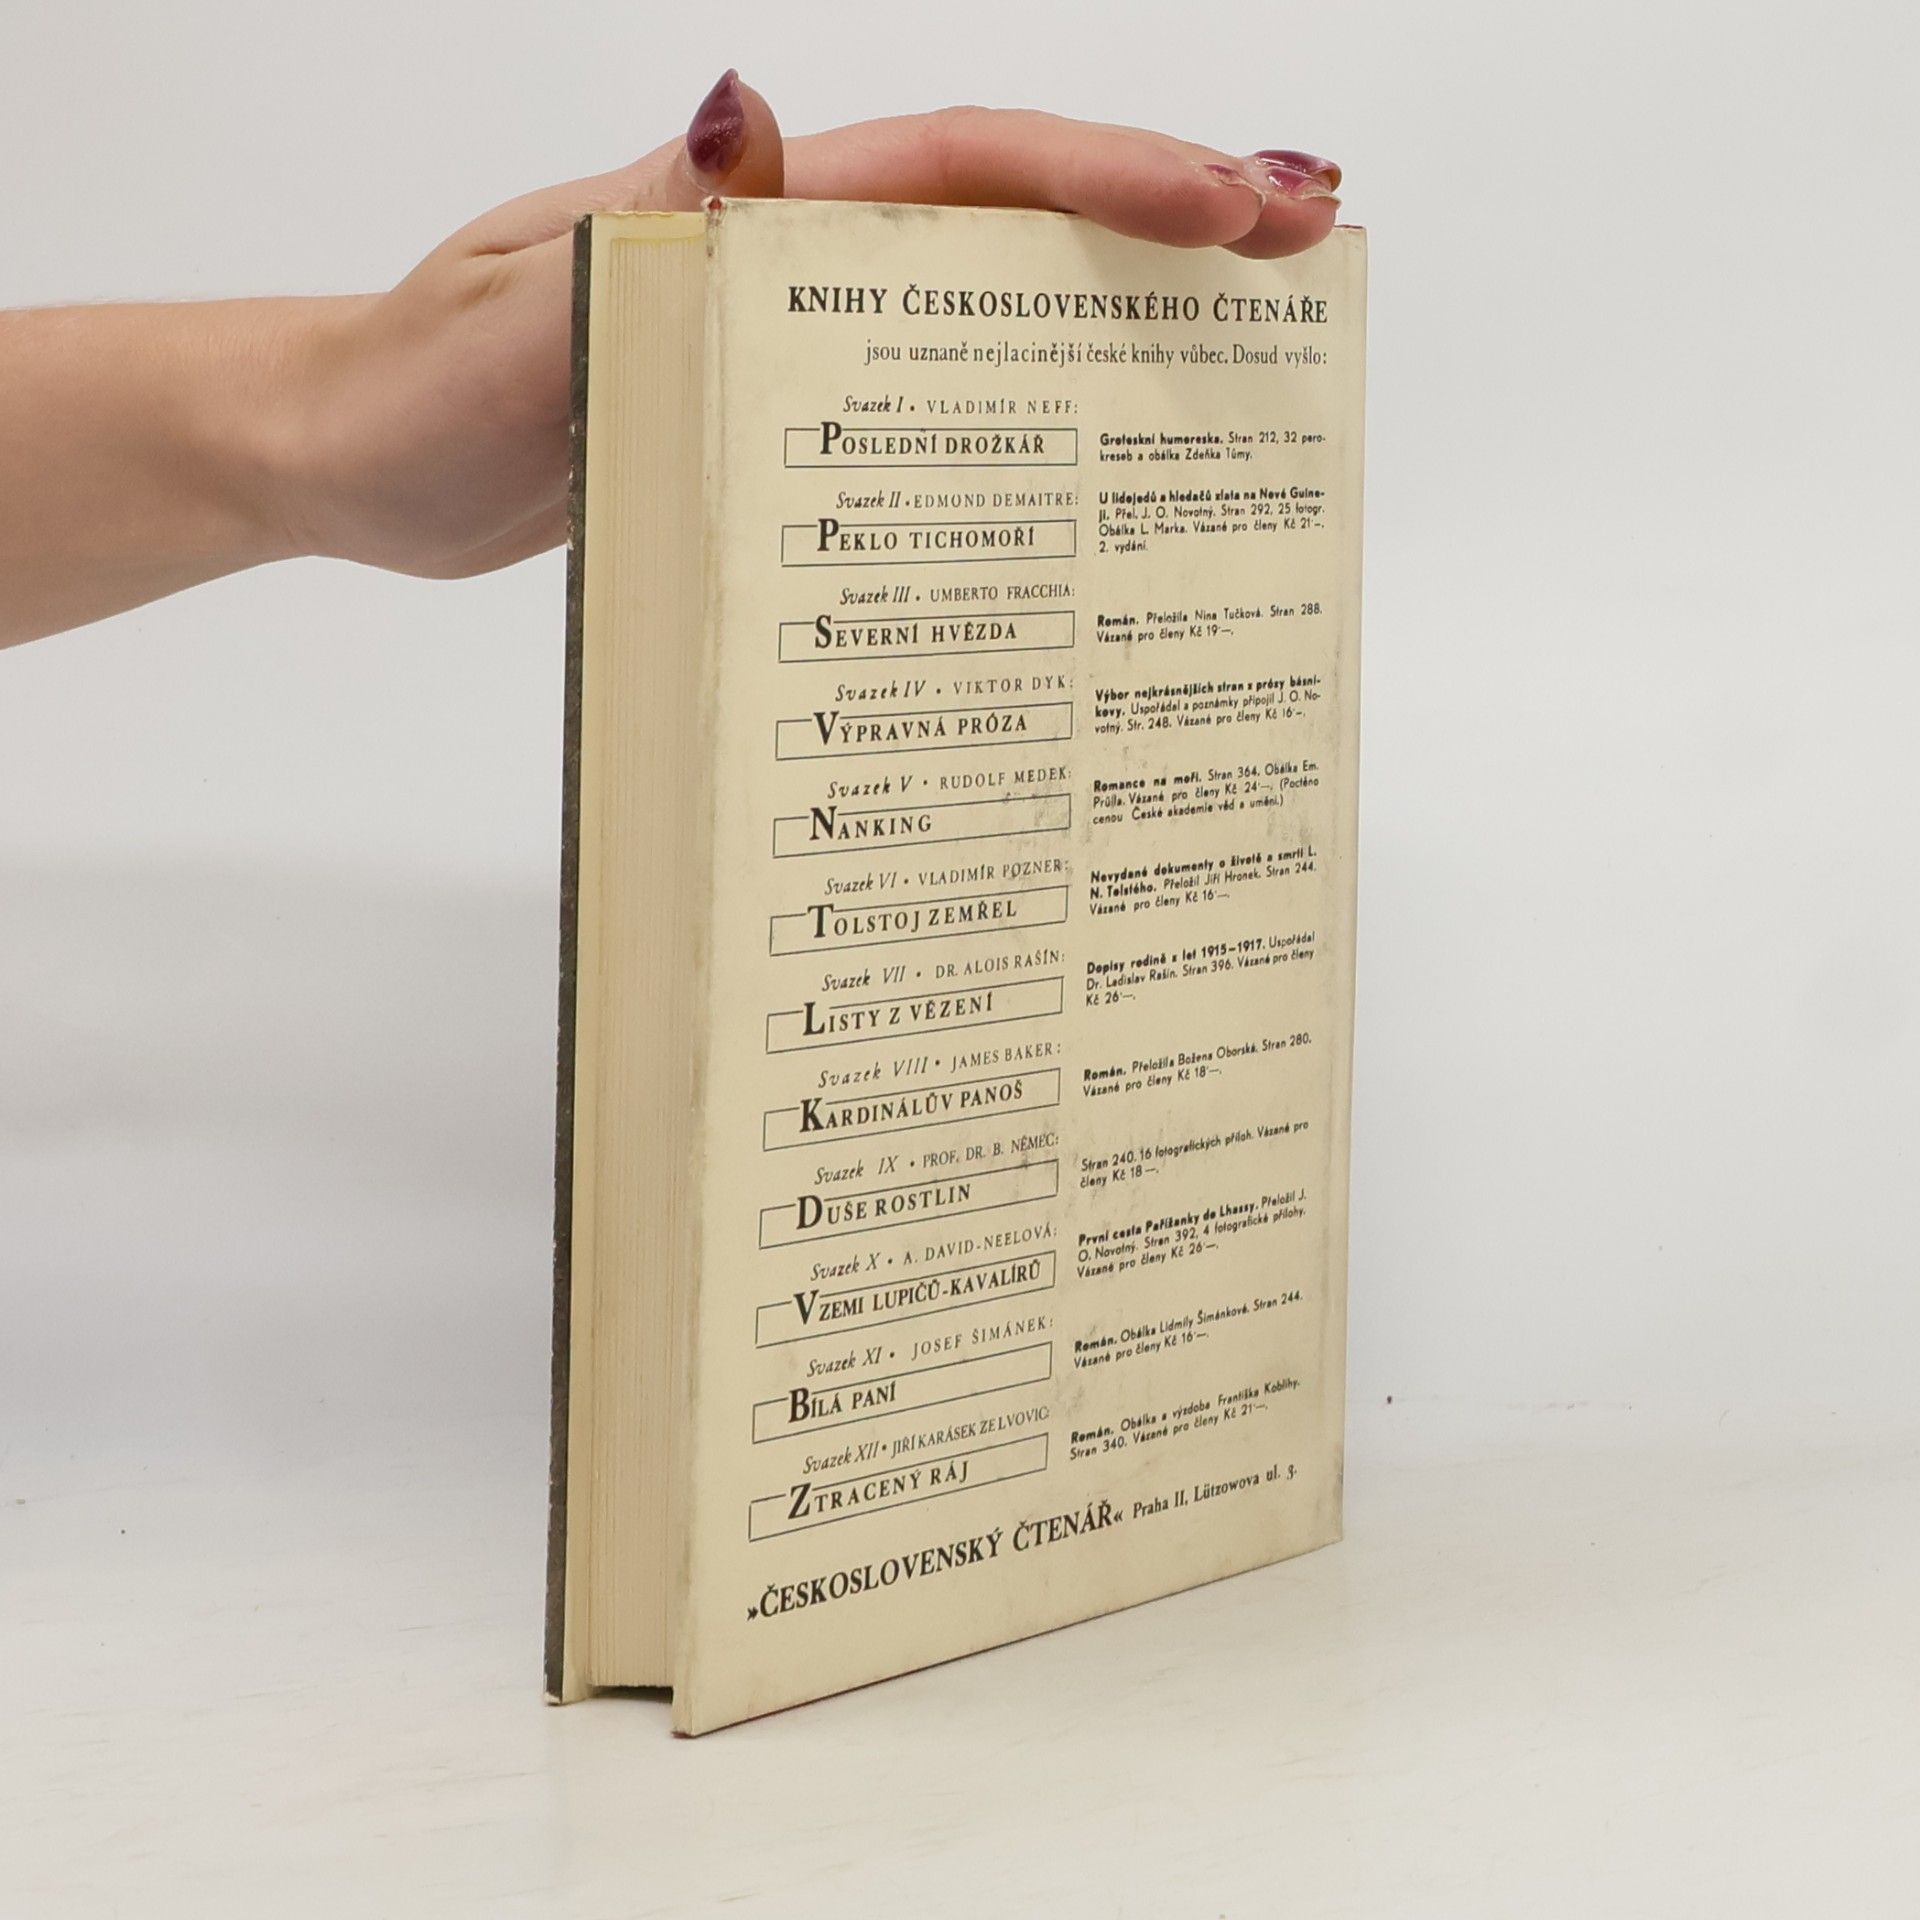 KNIHY ČESKOSLOVENSKÉHO ČTENÁŘE
jsou uznaně nejlacinější české knihy vůbec. Dosud vyšlo:
Svazek I • VLADIMÍR NEFF:
POSLEDNÍ DROŽKÁŘ
Groteskní humoreska. Stran 212, 32 pero-
kreseb a obálka Zdeňka Tůmy.
Svazek II • EDMOND DEMAITRE:
PEKLO TICHOMOŘÍ
U lidojedů a hledačů zlata na Nové Guine-
ji. Přel. J. O. Novotný. Stran 292, 25 fotogr.
Obálka L. Marka. Vázané pro členy Kč 21·–.
2. vydání.
Svazek III • UMBERTO FRACCHIA:
SEVERNÍ HVĚZDA
Román. Přeložila Nina Tučková. Stran 288.
Vázané pro členy Kč 19·—.
Svazek IV • VIKTOR DYK:
VÝPRAVNÁ PRÓZA
Výbor nejkrásnějších stran z prósy básní-
kovy. Uspořádal a poznámky připojil J. O. No-
votný. Str. 248. Vázané pro členy Kč 16·–.
Svazek V • RUDOLF MEDEK:
NANKING
Romance na moři. Stran 364. Obálka Em.
Průšla. Vázané pro členy Kč 24·—. (Poctěno
cenou České akademie věd a umění.)
Svazek VI • VLADIMÍR POZNER:
TOLSTOJ ZEMŘEL
Nevydané dokumenty o životě a smrti L.
N. Tolstého. Přeložil Jiří Hronek. Stran 244.
Vázané pro členy Kč 16·—.
Svazek VII • DR. ALOIS RAŠÍN:
LISTY Z VĚZENÍ
Dopisy rodině z let 1915–1917. Uspořádal
Dr. Ladislav Rašín. Stran 396. Vázané pro členy
Kč 26·—.
Svazek VIII • JAMES BAKER:
KARDINÁLŮV PANOŠ
Román. Přeložila Božena Oborská. Stran 280.
Vázané pro členy Kč 18·—.
Svazek IX • PROF. DR. B. NĚMEC:
DUŠE ROSTLIN
Stran 240. 16 fotografických příloh. Vázané pro
členy Kč 18 —.
Svazek X • A. DAVID-NEELOVÁ:
V ZEMI LUPIČŮ-KAVALÍRŮ
První cesta Pařížanky do Lhassy. Přeložil J.
O. Novotný. Stran 392, 4 fotografické přílohy.
Vázané pro členy Kč 26·—.
Svazek XI • JOSEF ŠIMÁNEK:
BÍLÁ PANÍ
Román. Obálka Lidmily Šimánkové. Stran 244.
Vázané pro členy Kč 16·—.
Svazek XII • JIŘÍ KARÁSEK ZE LVOVIC:
ZTRACENÝ RÁJ
Román. Obálka a výzdoba Františka Koblihy.
Stran 340. Vázané pro členy Kč 21·—.
»ČESKOSLOVENSKÝ ČTENÁŘ« Praha II, Lützowova ul. 3.